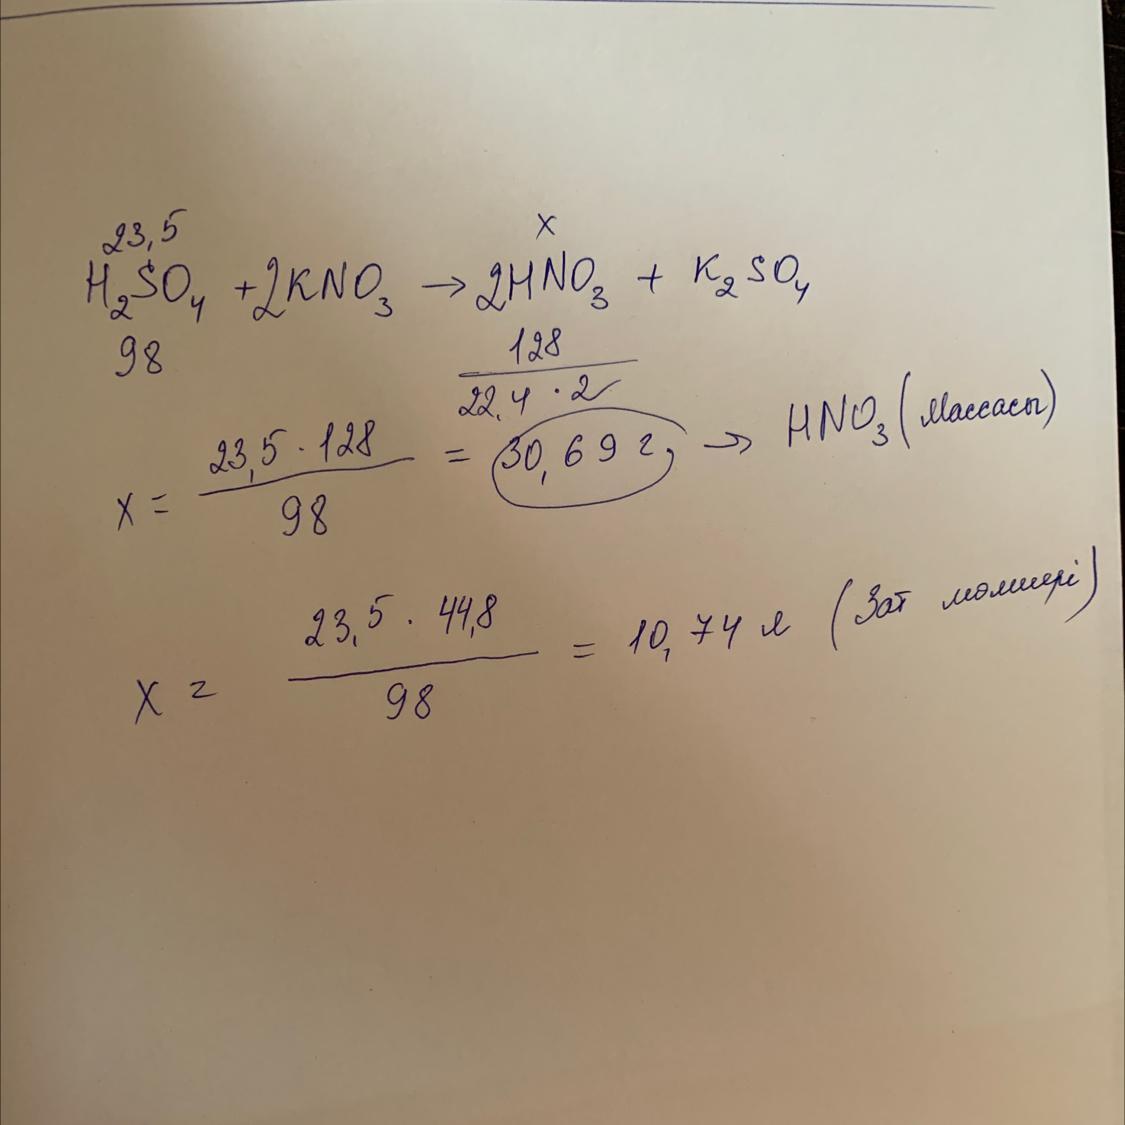 23,5 x
H₂SO₄ + 2KNO₃ → 2HNO₃ + K₂SO₄
98 128
22,4 · 2
x = 23,5 · 128 / 98 = 30,69 г, → HNO₃ (массасы)
x = 23,5 · 44,8 / 98 = 10,74 л (Зат мөлшері)